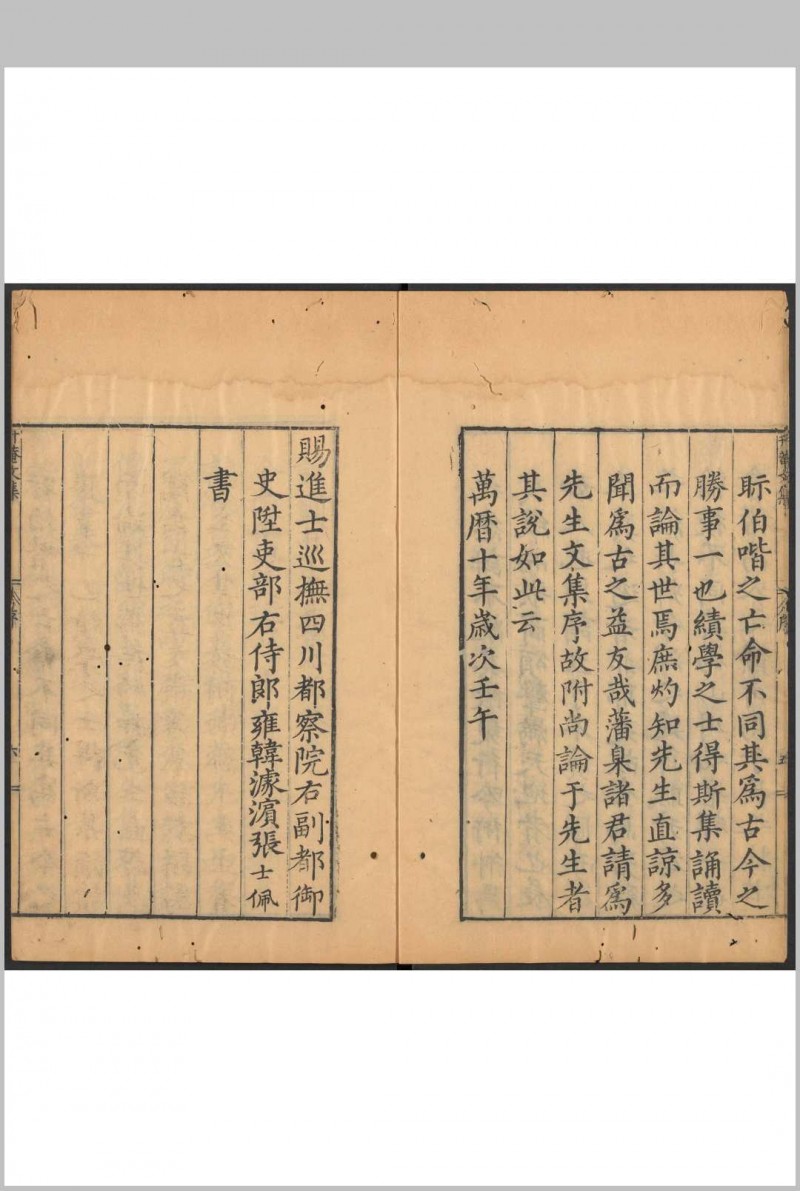 眎伯喈之亡命不同其爲古今之
勝事一也績學之士得斯集誦讀
而論其世焉庶灼知先生直諒多
聞爲古之益友哉藩臬諸君請爲
先生文集序故附尚論于先生者
其說如此云
萬曆十年歲次壬午
賜進士巡撫四川都察院右副都御
史陞吏部右侍郎雍韓澽濵張士佩
書